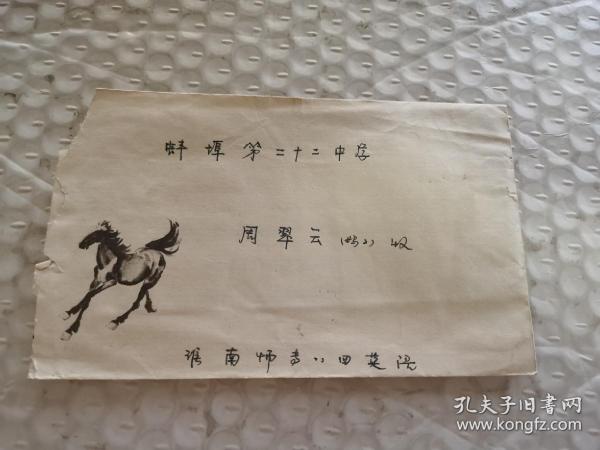 蚌埠第二十二中学
周翠云 收
淮南师专
孔夫子旧书网
www.kongfz.com